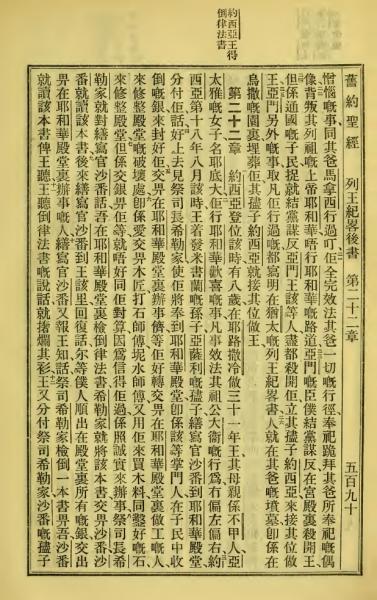 約西亞王得
倒律法書
舊約聖經 列王紀畧後書 第二十二章 五百九十
憎惱嘅事同其爸馬拿西行過吖佢全完效法其爸一切嘅行徑奉祀跪拜其爸所奉祀嘅偶
像背叛其列祖嘅上帝耶和華唔行耶和華嘅路道亞門嘅臣僕結黨謀反在宮殿裏殺開王
但係通國嘅子民捉就結黨謀反亞門王該等人盡都殺開佢立其孻子約西亞來接其位做
王亞門另外嘅事取凡行過嘅都寫明在猶太嘅列王紀畧書人就在其爸嘅墳墓卽係在
烏撒嘅園裏埋葬佢其孻子約西亞就接其位做王
第二十二章 約西亞登位該時有八歲在耶路撒冷做三十一年王其母親係不甲人亞
太雅嘅女子名耶底大佢行耶和華歡喜嘅事凡事效法其祖公大衞嘅行為冇偏左偏右約
西亞第十八年八月該時王着發米書蘭嘅孫子亞薩利嘅孻子繕寫官沙番到耶和華殿堂
分付佢話好上去見祭司長希勒家使佢將奉到耶和華殿堂卽係該等掌門人在子民中收
倒嘅銀來封好佢交畀在耶和華殿堂裏辦事儕等佢好轉交畀在耶和華殿堂裏做工嘅人
來修整殿堂嘅破壞處卽係愛交畀木匠打石師傅坭水師傅又用佢來買木料同鑿好嘅石
來修整殿堂但係交銀畀佢等就唔好同佢對算因爲信得佢過係照誠實來辦事祭司長希
勒家就對繕寫官沙番話吾在耶和華殿堂裏檢倒律法書希勒家就將該本書交畀沙番沙
番就讀該本書後來繕寫官沙番到王該里回復話尔等僕人順出在殿堂裏所有嘅銀交出
畀在耶和華殿堂裏辦事嘅人繕寫官沙番又報王知話祭司希勒家檢倒一本書畀吾沙番
就讀該本書俾王聽王聽倒律法書嘅說話就㨒爛其衫王又分付祭司希勒家沙番嘅孻子